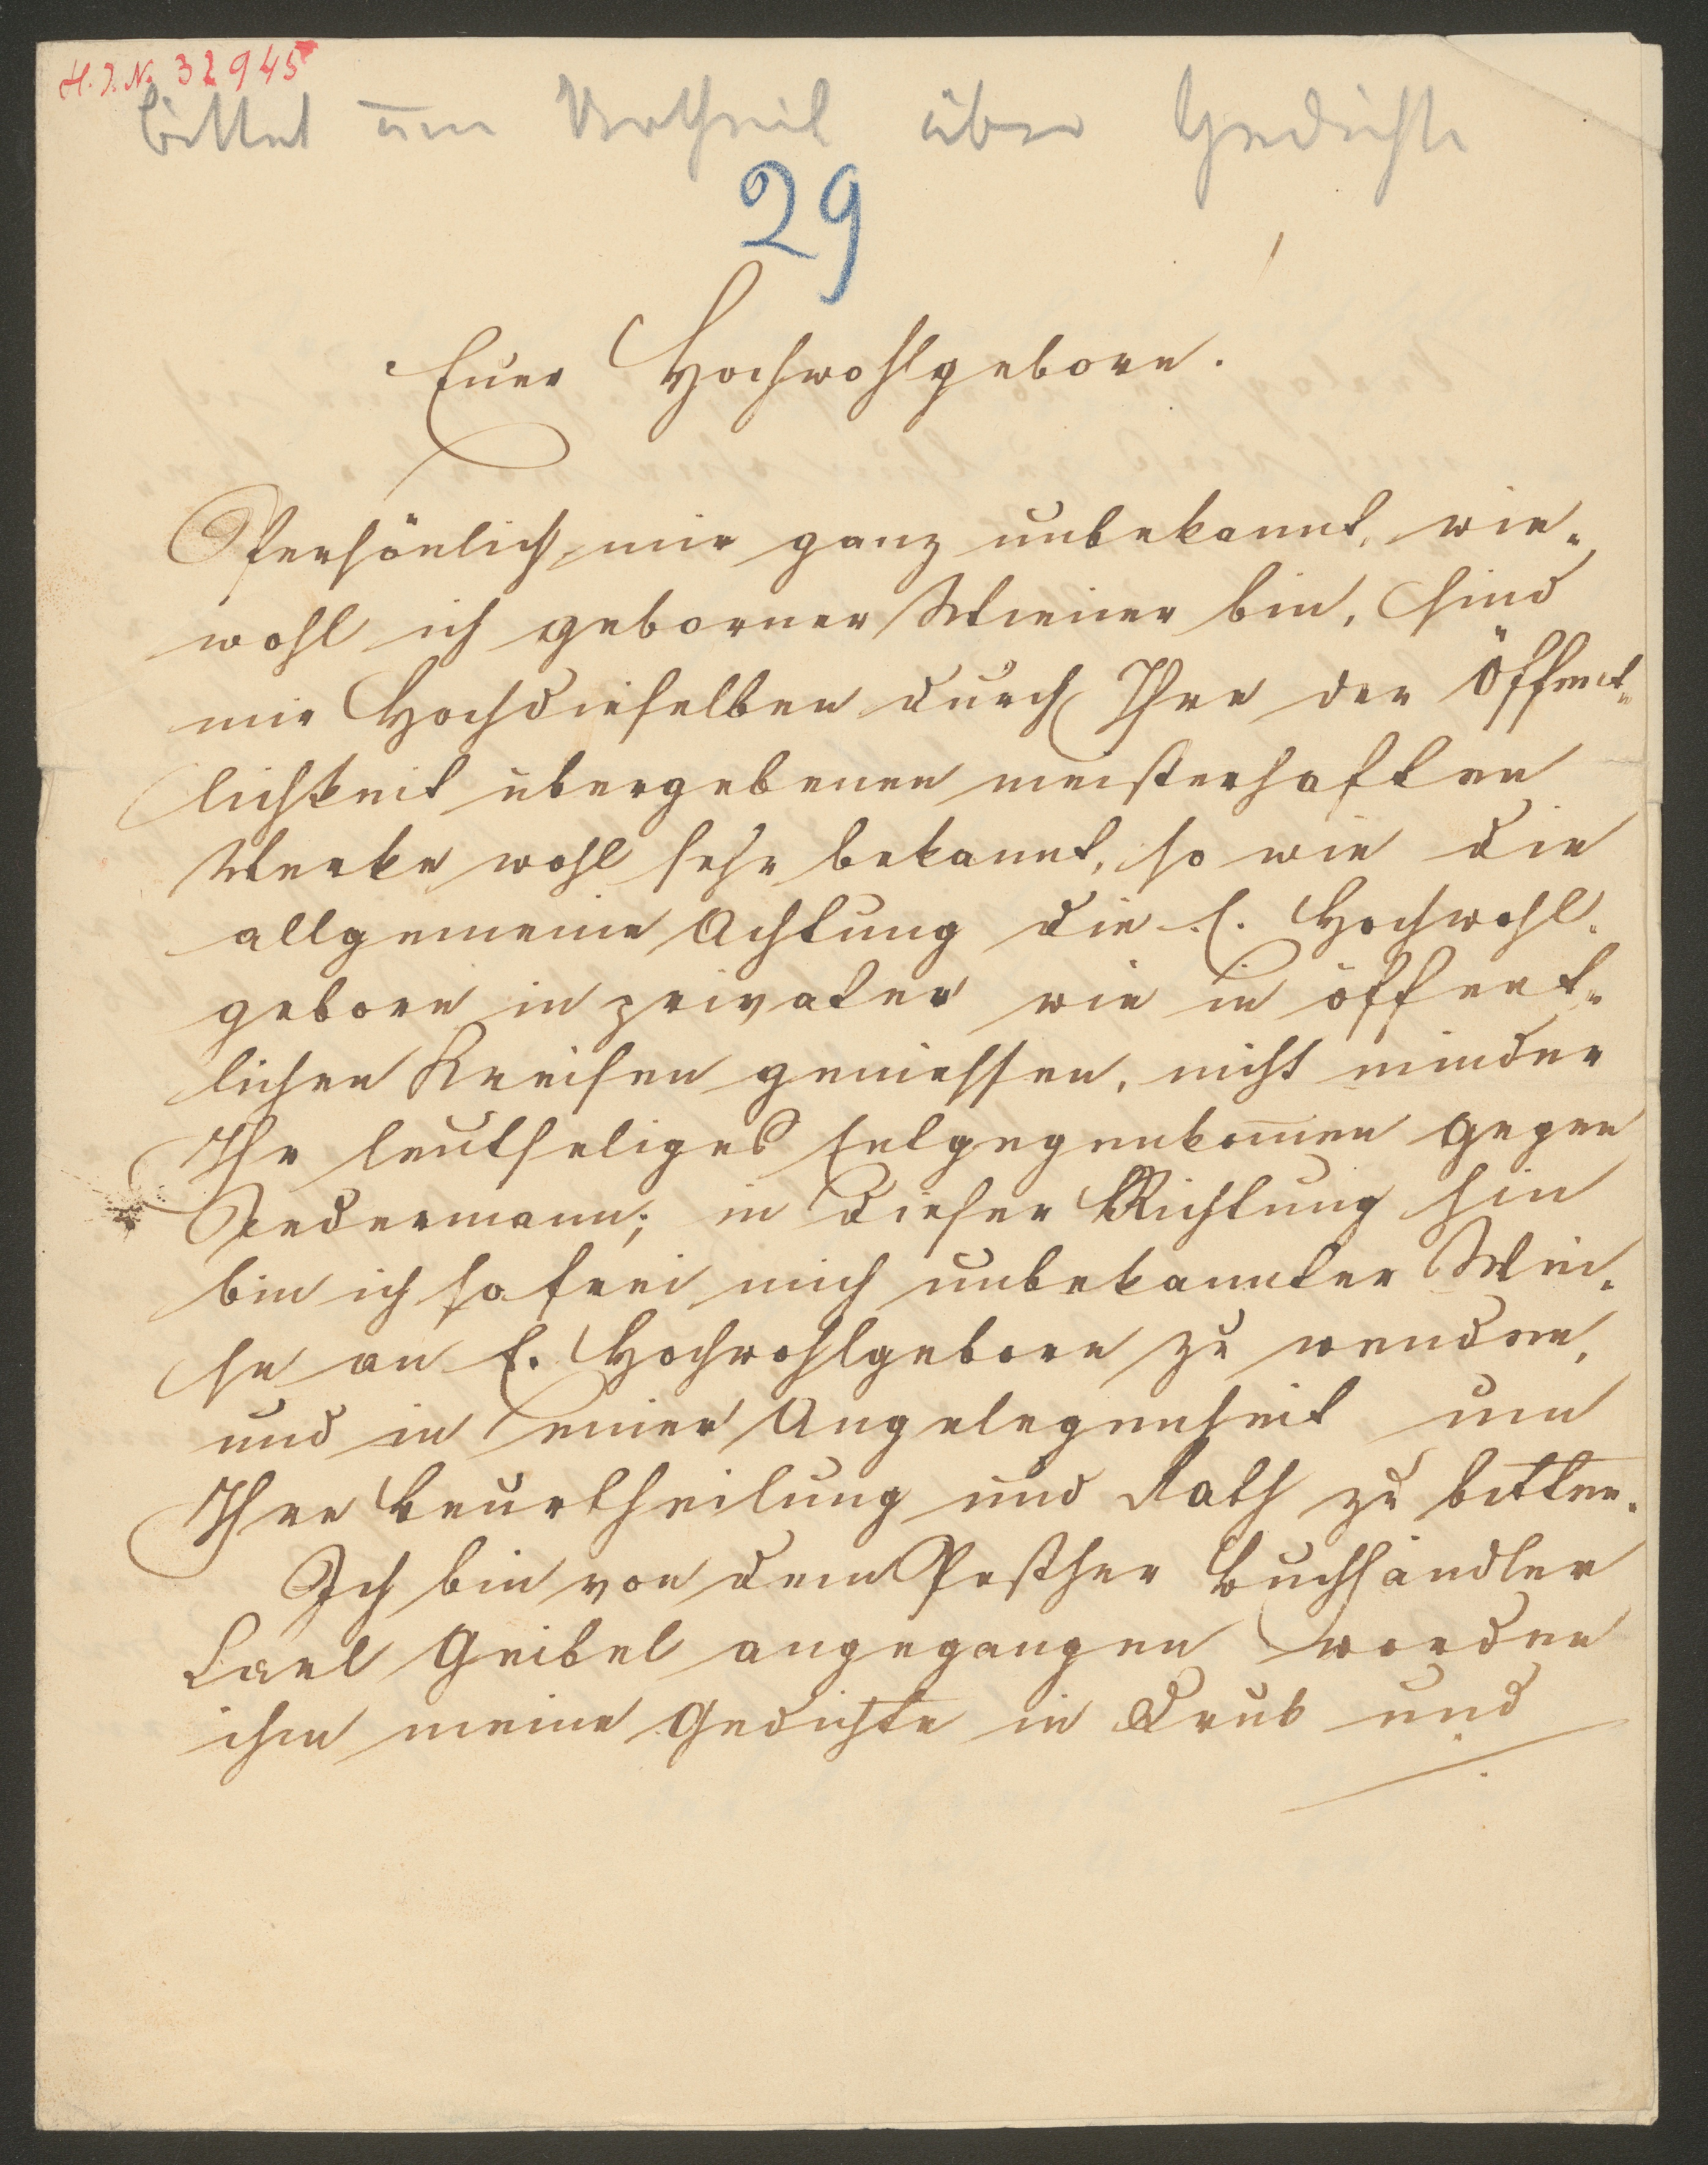 H. I. N. 32945
bittet um Urtheil über Gedichte
29
Euer Hochwohlgeboren.
Persönlich mir ganz unbekannt, wie-
wohl ich geborner Wiener bin, sind
mir Hochdieselben durch Ihre der Öffent-
lichkeit übergebenen meisterhaften
Werke wohl sehr bekannt, so wie die
allgemeine Achtung die E. Hochwohl-
geboren in privaten wie in öffent-
lichen Kreisen geniessen, nicht minder
Ihr leutseliges Entgegenkom̅en gegen
Jedermann; in dieser Richtung hin
bin ich so frei mich unbekannter Wei-
se an E. Hochwohlgeboren zu wenden,
und in einer Angelegenheit um
Ihre Beurtheilung und Rath zu bitten.
Ich bin von dem Pesther Buchhändler
Carl Geibel angegangen worden
ihm meine Gedichte in Druk und